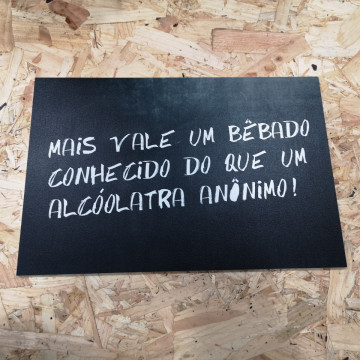 MAIS VALE UM BÊBADO
CONHECIDO DO QUE UM
ALCÓOLATRA ANÔNIMO!